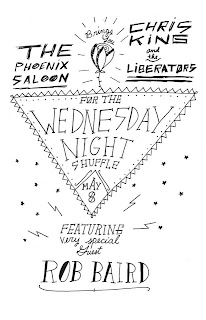 THE
PHOENIX
SALOON
Brings
CHRIS
KING
and the
LIBERATORS
FOR THE
WEDNESDAY
NIGHT
SHUFFLE
MAY
8
FEATURING
Very special
Guest
ROB BAIRD